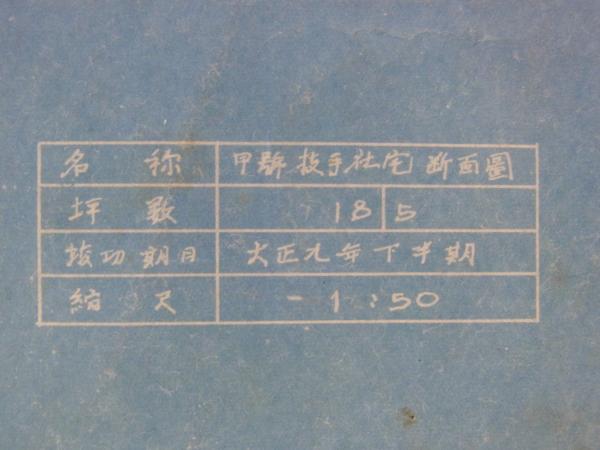 名 称 甲號技手社宅断面圖
坪 数 18 5
竣功期日 大正九年下半期
縮 尺 - 1:50